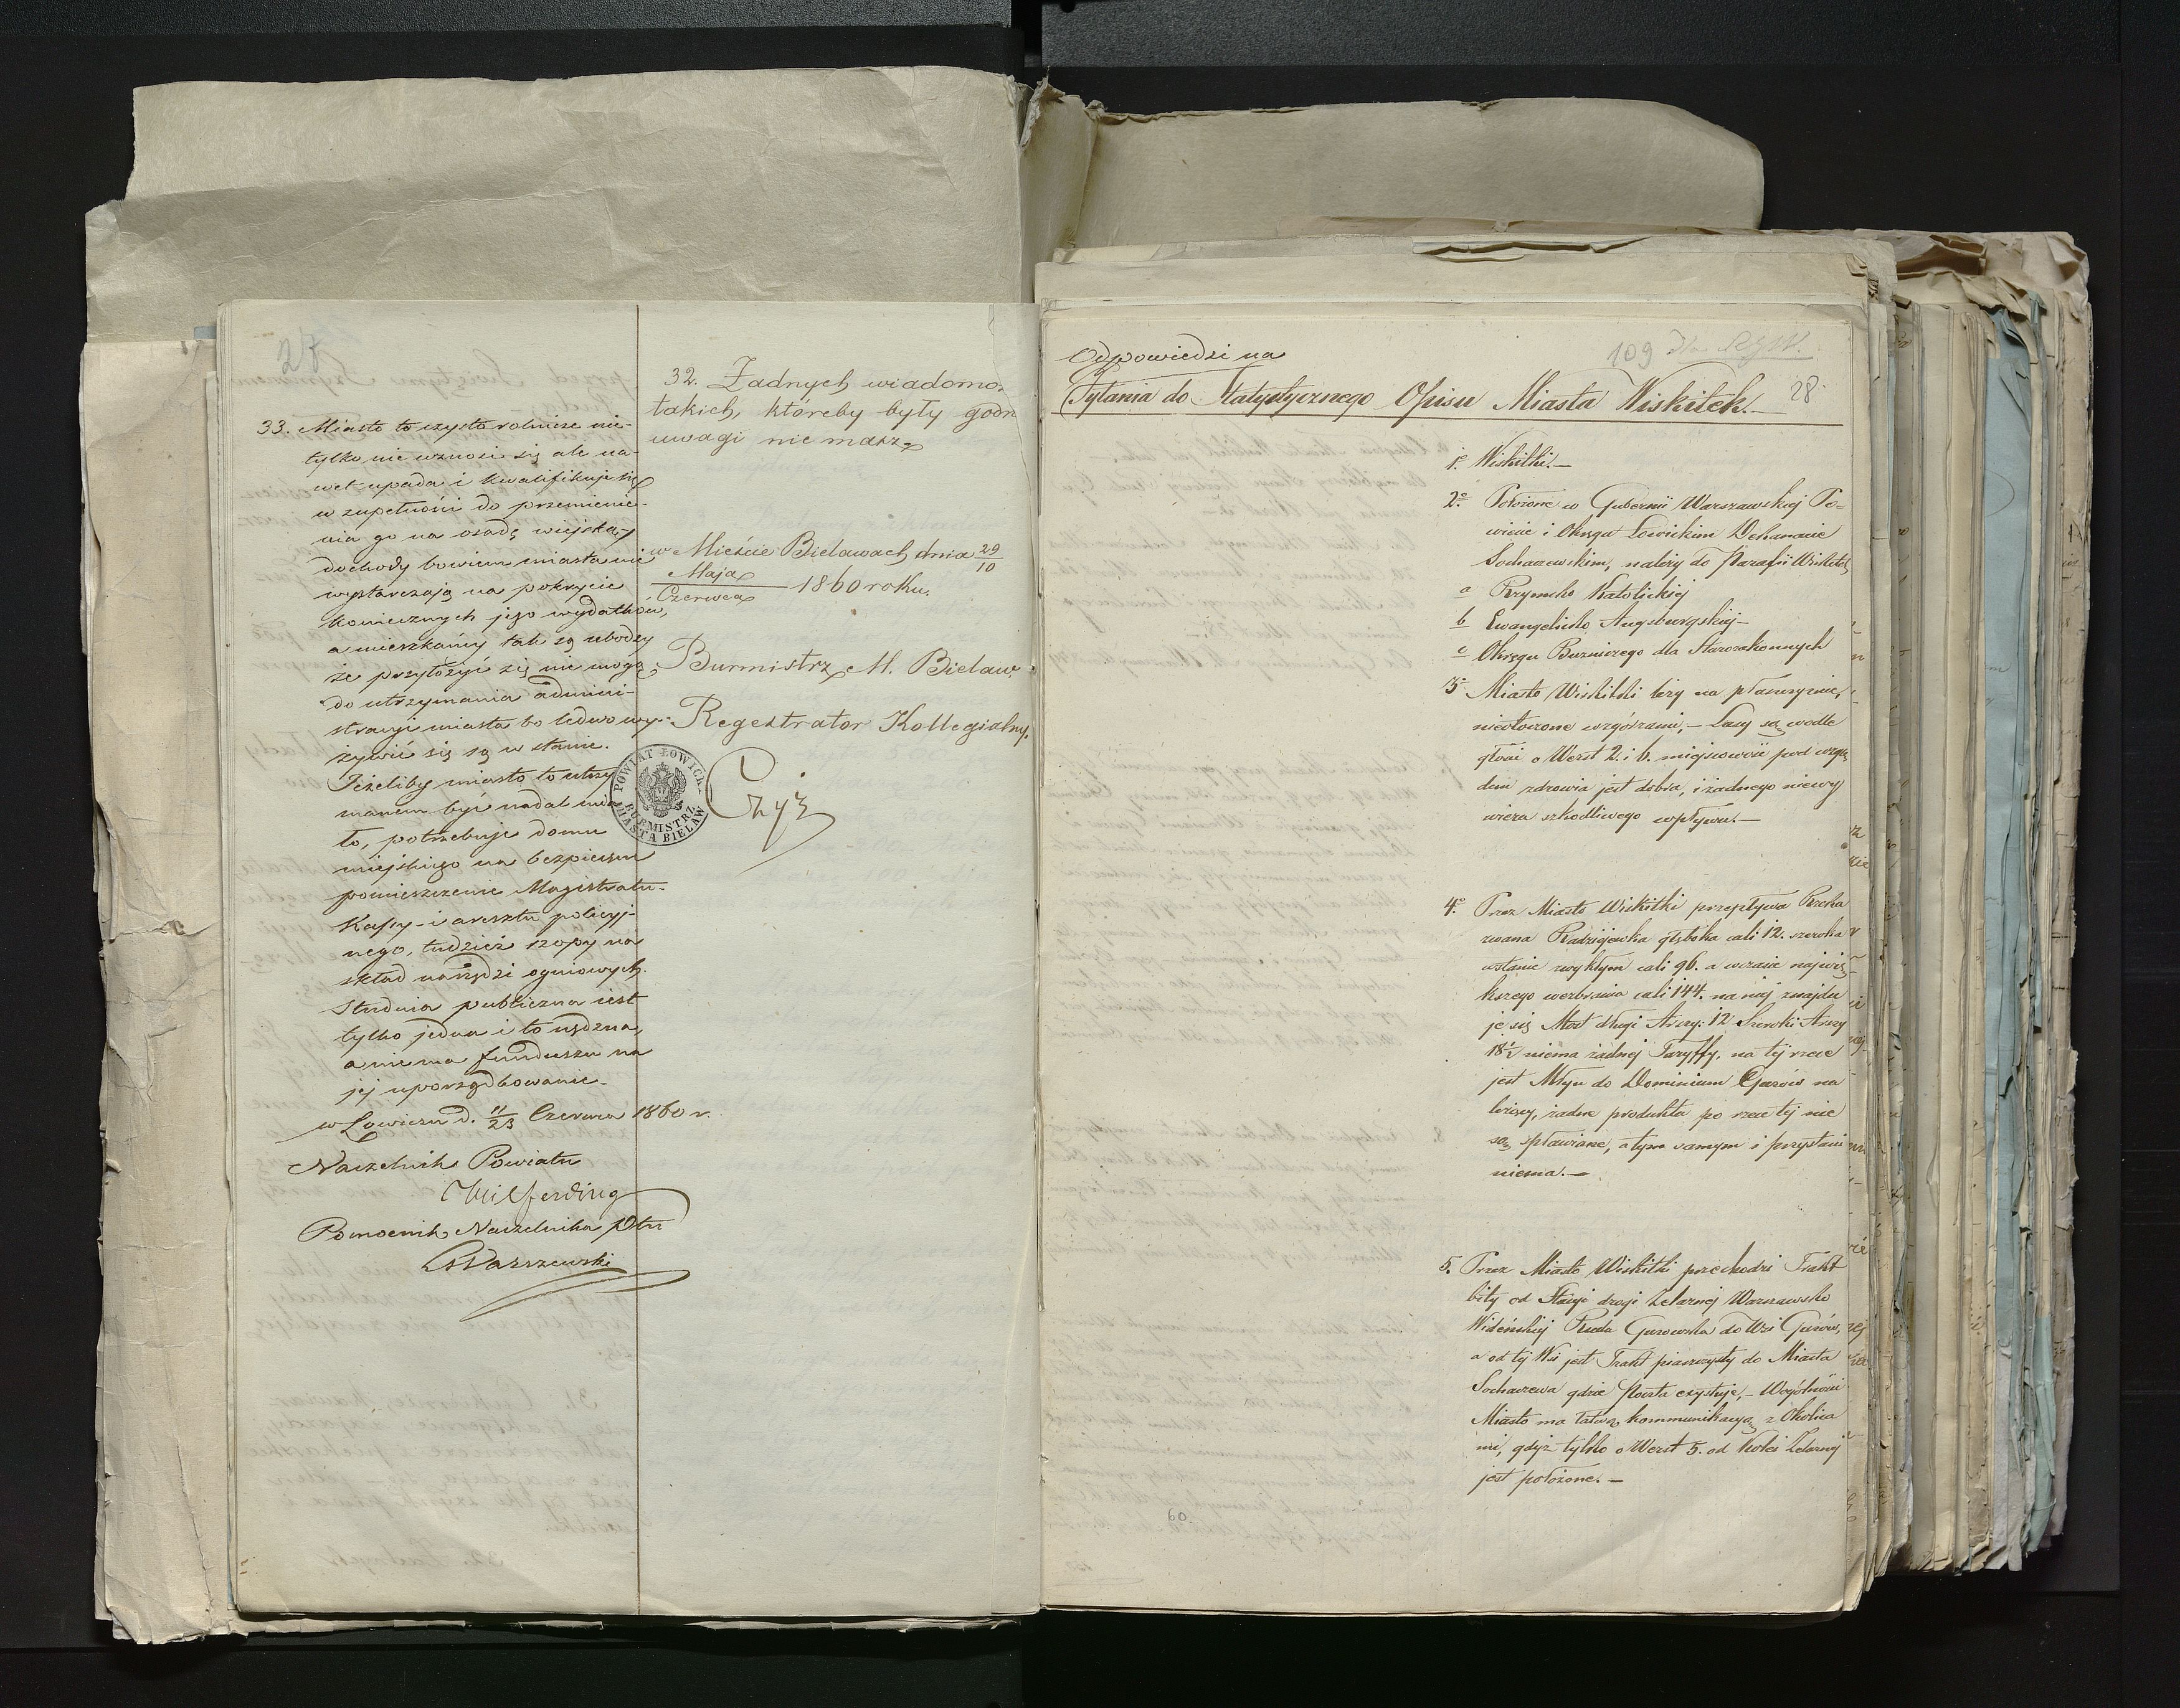 27
33. Miasto to czysto rolnicze nie-
tylko nie wznosi się ale na-
wet upada i kwalifikuje się
w zupełności do przemienie-
nia go na osadę wiejską,
dochody bowiem miasta nie
wystarczają na pokrycie
koniecznych jego wydatków,
a mieszkańcy tak są ubodzy
że przyłożyć się nie mogą
do utrzymania admini-
stracyi miasta bo ledwo wy-
żywić się są w stanie.
Jeżeliby miasto to utrzy
manem być nadal mia
ło, potrzebuje domu
miejskiego na bezpieczne
pomieszczenie Magistratu-
Kassy- i aresztu policyj-
nego, tudzież szopy na
skład narzędzi ogniowych.
Studnia publiczna jest
tylko jedna i to nędzna,
a niema funduszu na
jej uporządkowanie.
w Łowiczu d. 11/23 Czerwca 1860 r.
Naczelnik Powiatu
Hilferding
Pomocnik Naczelnika Ptu
Warszewski
32. Żadnych wiadomo-
takich, któreby były godn
uwagi nie masz.
w Mieście Bielawach dnia 29/10
Maja/Czerwca 1860 roku.
Burmistrz M. Bielaw.
Regestrator Kollegialny.
Czyż
POWIAT ŁOWICK.
BURMISTRZ
MIASTA BIELAW
109
28
Odpowiedzi na
Pytania do Statystycznego Opisu Miasta Wiskitek.
1º Wiskitki.—
2º Położone w Gubernii Warszawskiej Po-
wiecie i Okręgu Łowickim Dekanacie
Sochaczewskim, należy do Parafii Wiskitek
a Rzymsko Katolickiej
b Ewangelicko Augsburgskiej—
c Okręgu Bożniczego dla Starozakonnych
3º Miasto Wiskitki leży na płaszczyznie,
nieotoczone wzgórzami,— Lasy są wodle
głości o Werst 2. i 6. miejscowość pod wzglę
dem zdrowia jest dobra, i żadnego niewy
wiera szkodliwego wpływu.—
4º Przez Miasto Wiskitki przepływa Rzeka
zwana Radziejewka głęboka cali 12. szeroka
wstanie zwykłym cali 96. a wczasie najwię
kszego wezbrania cali 144. na niej znajdu
je się Most długi Arszy: 12 Szeroki Arszy
18½ niema żadnej Taryffy, na tej rzece
jest Młyn do Dominium Guzów na
leżący, żadne produkta po rzece tej nie
są spławiane, a tym samym i przystani
niema.—
5. Przez Miasto Wiskitki przechodzi Trakt
bity od Stacyi drogi Żelaznej Warszawsko
Wideńskiej Ruda Guzowska do Wsi Guzów,
a od tej Wsi jest Trakt piaszczysty do Miasta
Sochaczewa gdzie Poczta exystuje,— Wogólności
Miasto ma łatwą kommunikacyą z Okolica
mi, gdyż tylko o Werst 5. od Kolei Żelaznej
jest położone.—
60.